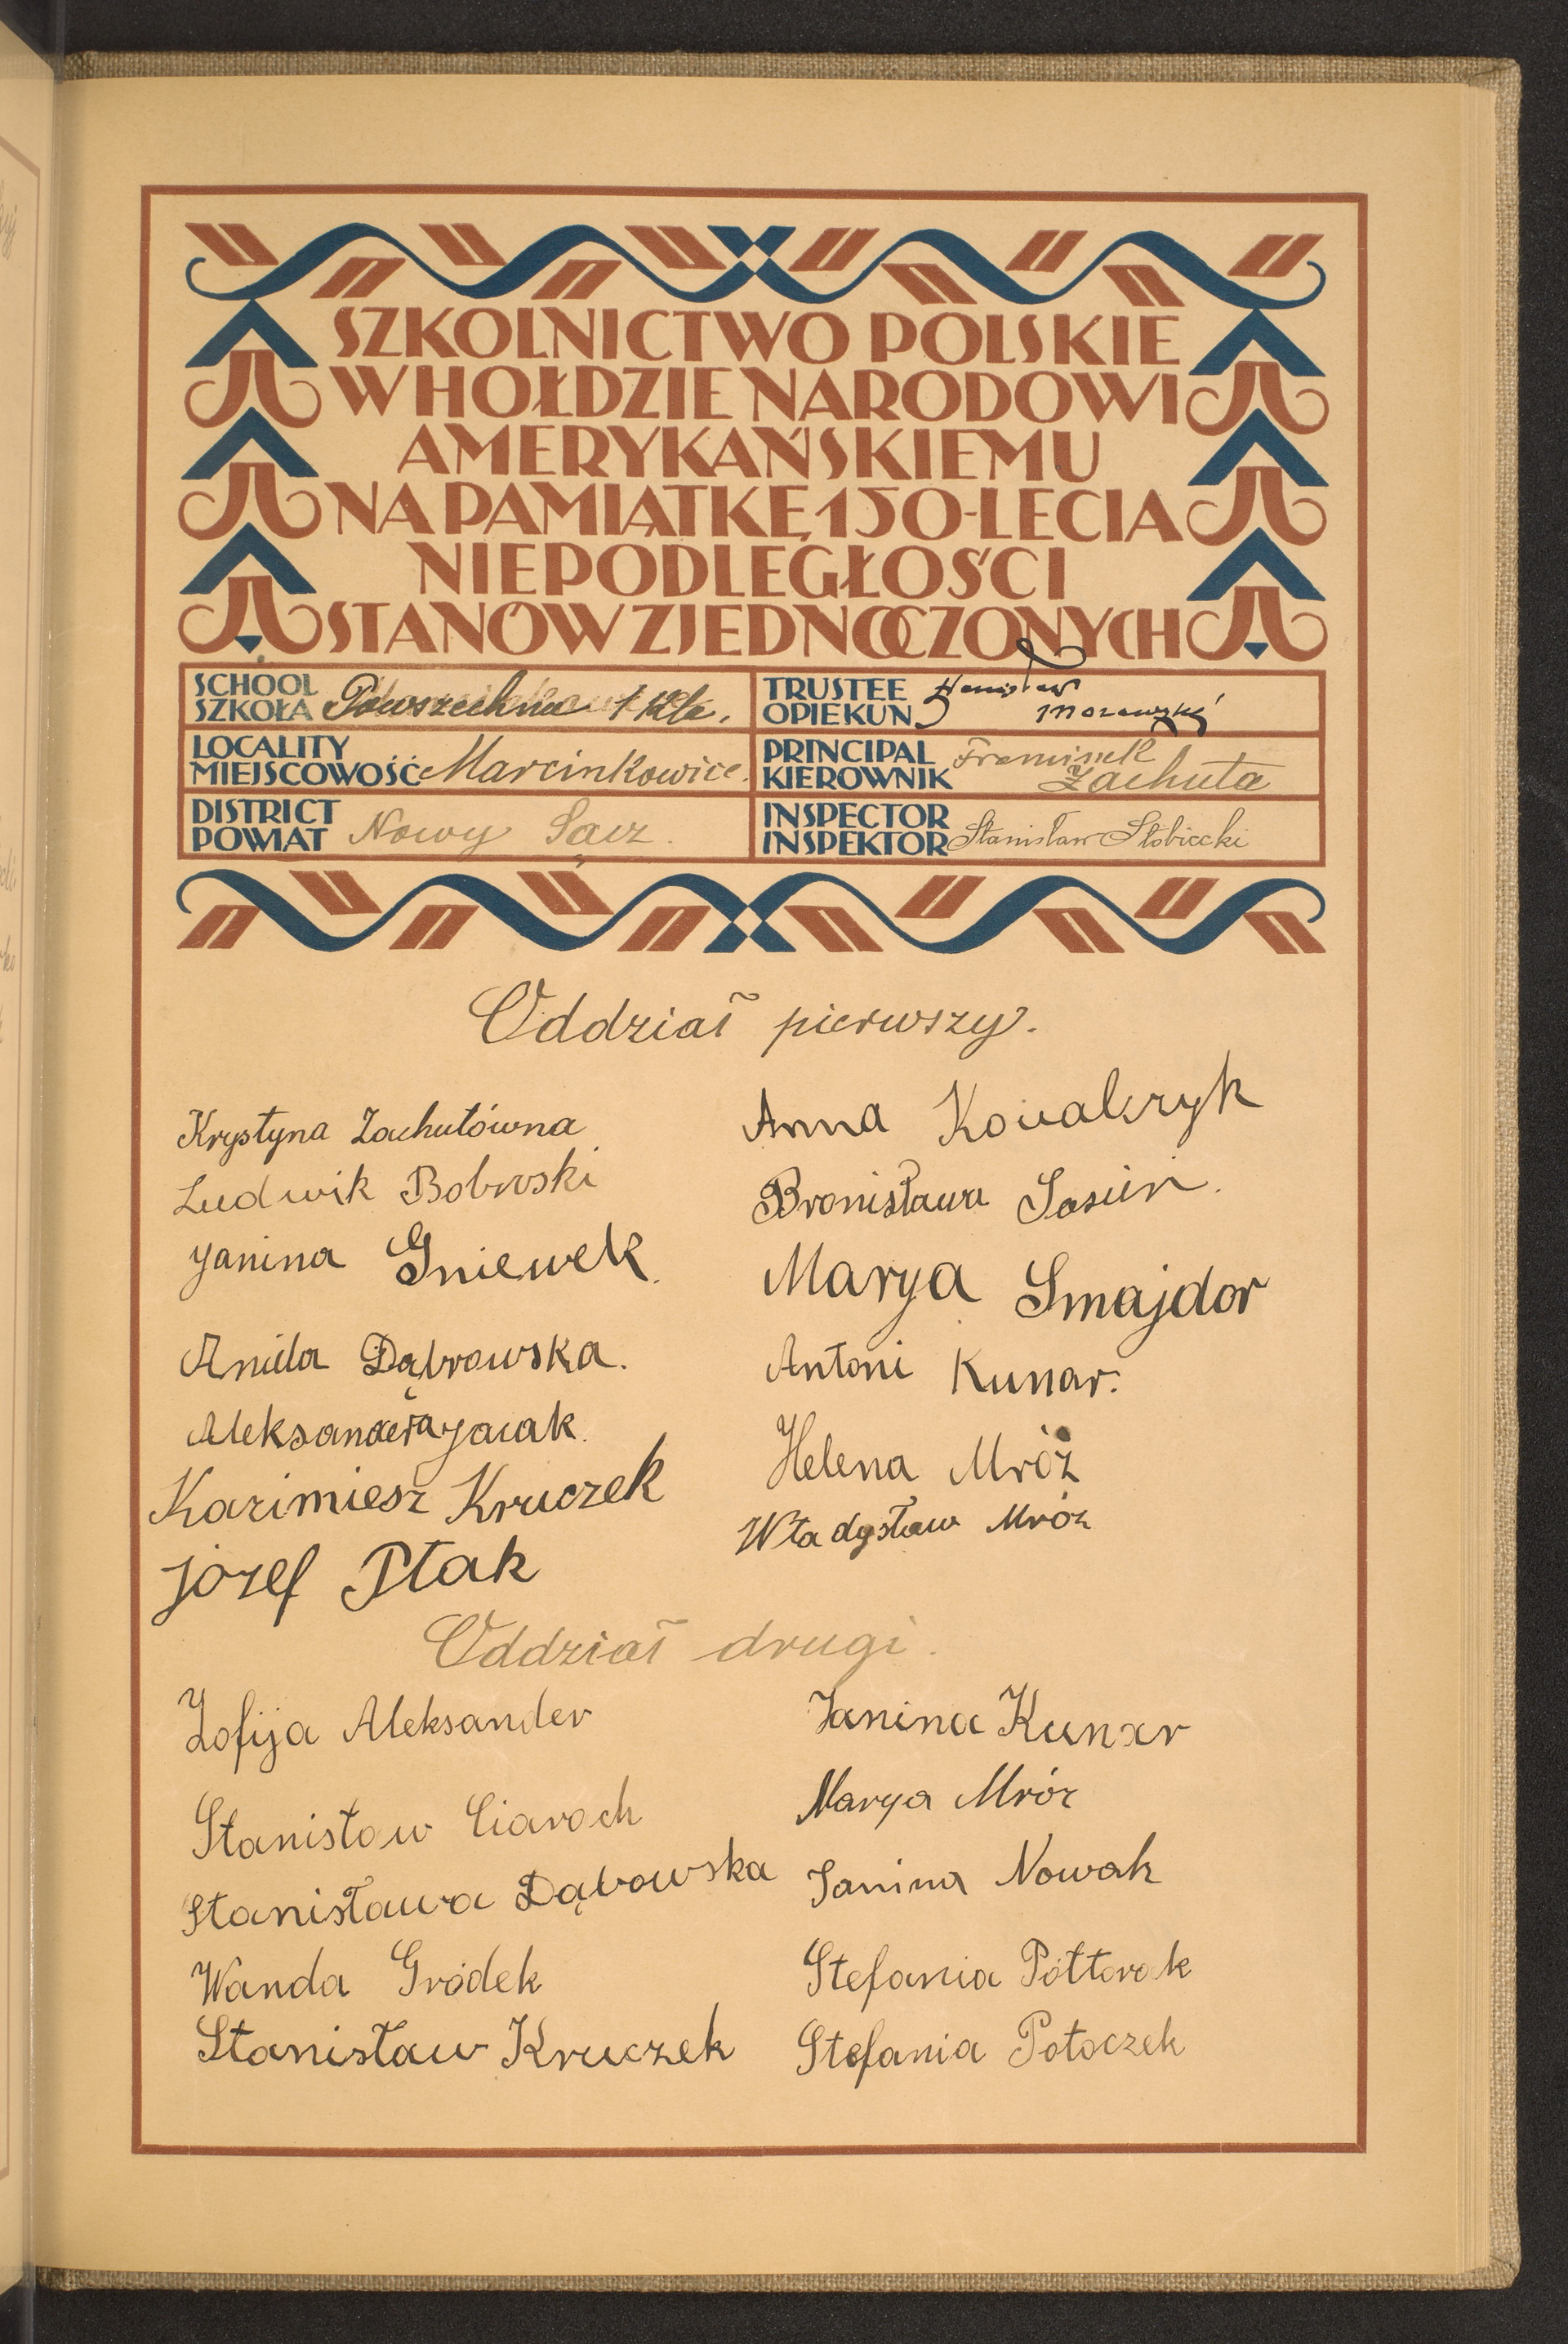 SZKOLNICTWO POLSKIE
W HOŁDZIE NARODOWI
AMERYKAŃSKIEMU
NA PAMIĄTKĘ 150-LECIA
NIEPODLEGŁOŚCI
STANÓW ZJEDNOCZONYCH
SCHOOL
SZKOŁA Powszechna 1 kla.
LOCALITY
MIEJSCOWOŚĆ Marcinkowice.
DISTRICT
POWIAT Nowy Sącz.
TRUSTEE
OPIEKUN Stanisław Morawski
PRINCIPAL
KIEROWNIK Zachuta
INSPECTOR
INSPEKTOR Stanisław Słobiecki
Oddział pierwszy.
Krystyna Zachutówna
Ludwik Bobroski
Janina Gniewek.
Aniela Dąbrowska.
Aleksandera Jacak.
Kazimiesz Kruczek
Józef Ptak
Anna Kowalczyk
Bronisława
Marya Smajdor
Antoni Kunar.
Helena Mróz
Władysław Mróz
Oddział drugi.
Zofija Aleksander
Stanisław Ciaroch
Stanisława Dąbowska
Wanda Gródek
Stanisław Kruczek
Janina Kunar
Marya Mróz
Janina Nowak
Stefania Półtorak
Stefania Potoczek